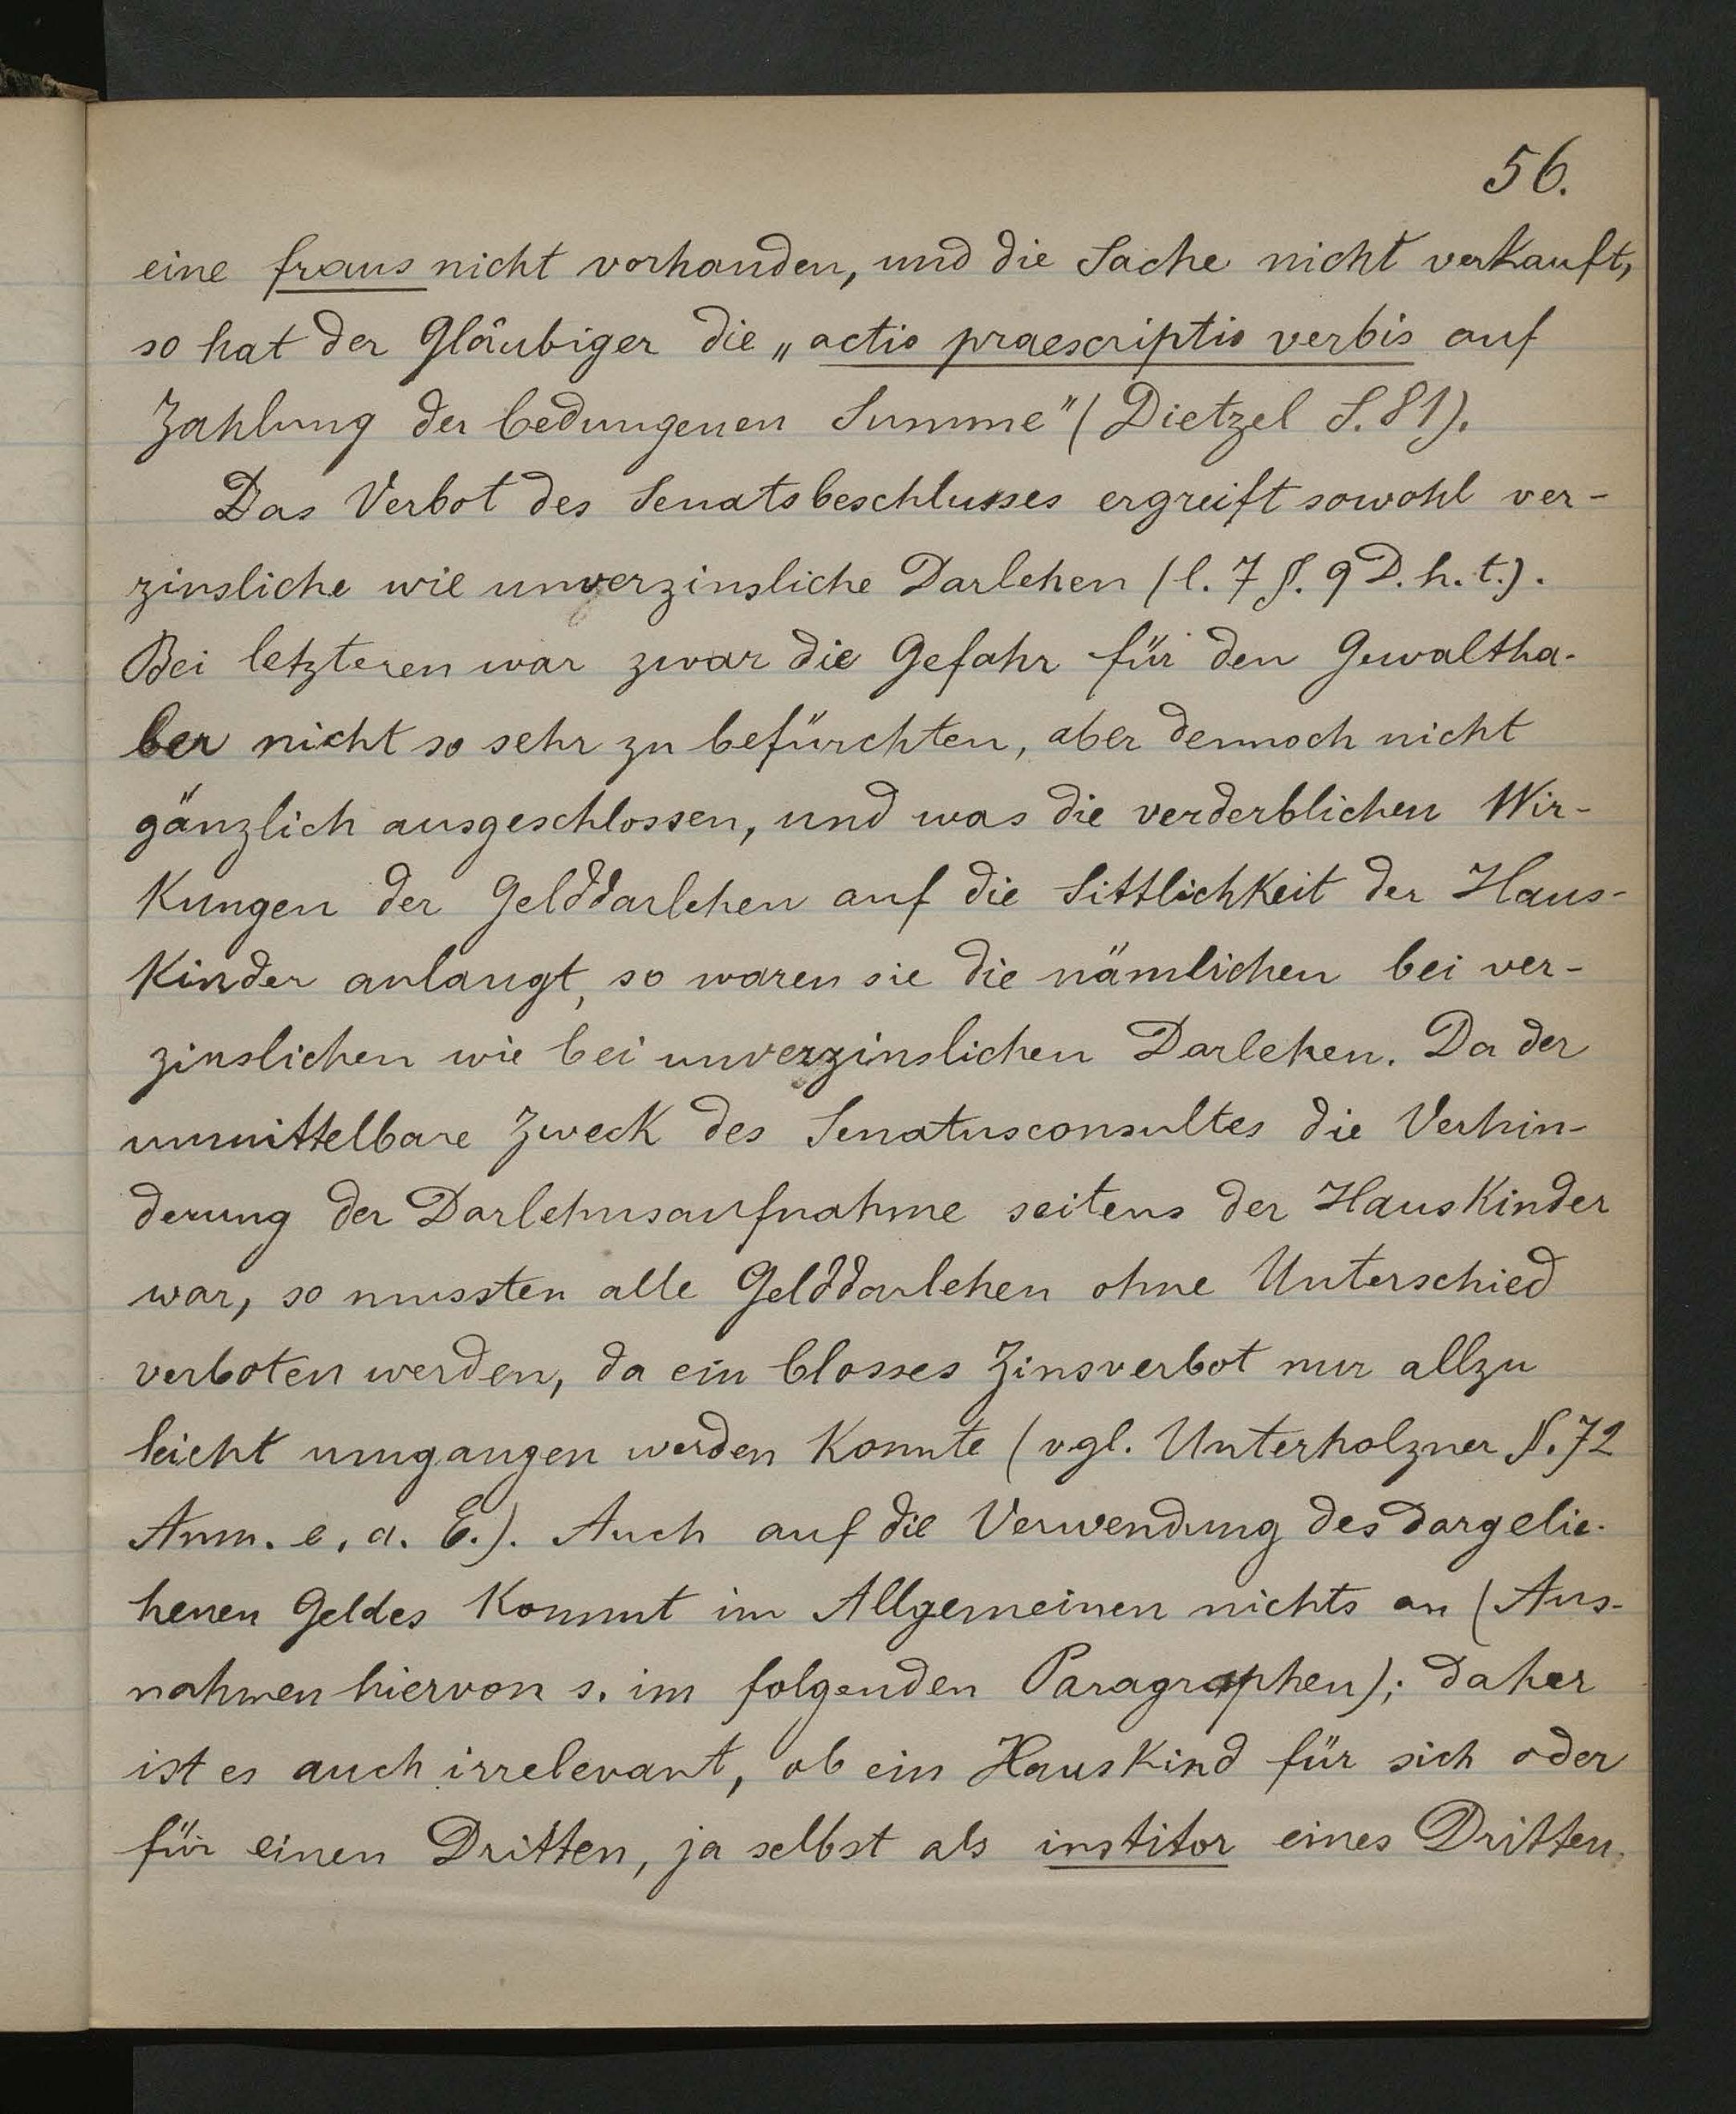 56.
eine fraus nicht vorhanden, und die Sache nicht verkauft,
so hat der Gläubiger die „actio praescriptis verbis auf
Zahlung der bedungenen Summe" (Dietzel S. 81).
Das Verbot des Senatsbeschlusses ergreift sowohl ver-
zinsliche wie unverzinsliche Darlehen (l. 7 §. 9 D. h. t.).
Bei letzteren war zwar die Gefahr für den Gewaltha-
ber nicht so sehr zu befürchten, aber dennoch nicht
gänzlich ausgeschlossen, und was die verderblichen Wir-
kungen der Gelddarlehen auf die Sittlichkeit der Haus-
kinder anlangt, so waren sie die nämlichen bei ver-
zinslichen wie bei unverzinslichen Darlehen. Da der
unmittelbare Zweck des Senatusconsultes die Verhin-
derung der Darlehnsaufnahme seitens der Hauskinder
war, so mussten alle Gelddarlehen ohne Unterschied
verboten werden, da ein blosses Zinsverbot nur allzu
leicht umgangen werden konnte (vgl. Unterholzner §. 72
Anm. e. a. E.). Auch auf die Verwendung des dargelie-
henen Geldes kommt im Allgemeinen nichts an (Aus-
nahmen hiervon s. im folgenden Paragraphen); daher
ist es auch irrelevant, ob ein Hauskind für sich oder
für einen Dritten, ja selbst als institor eines Dritten